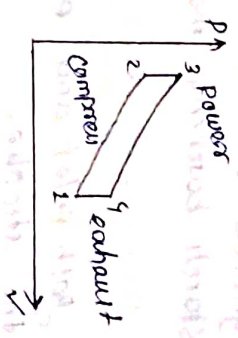 P
3 Power
2
compress
4
1
exhaust
V